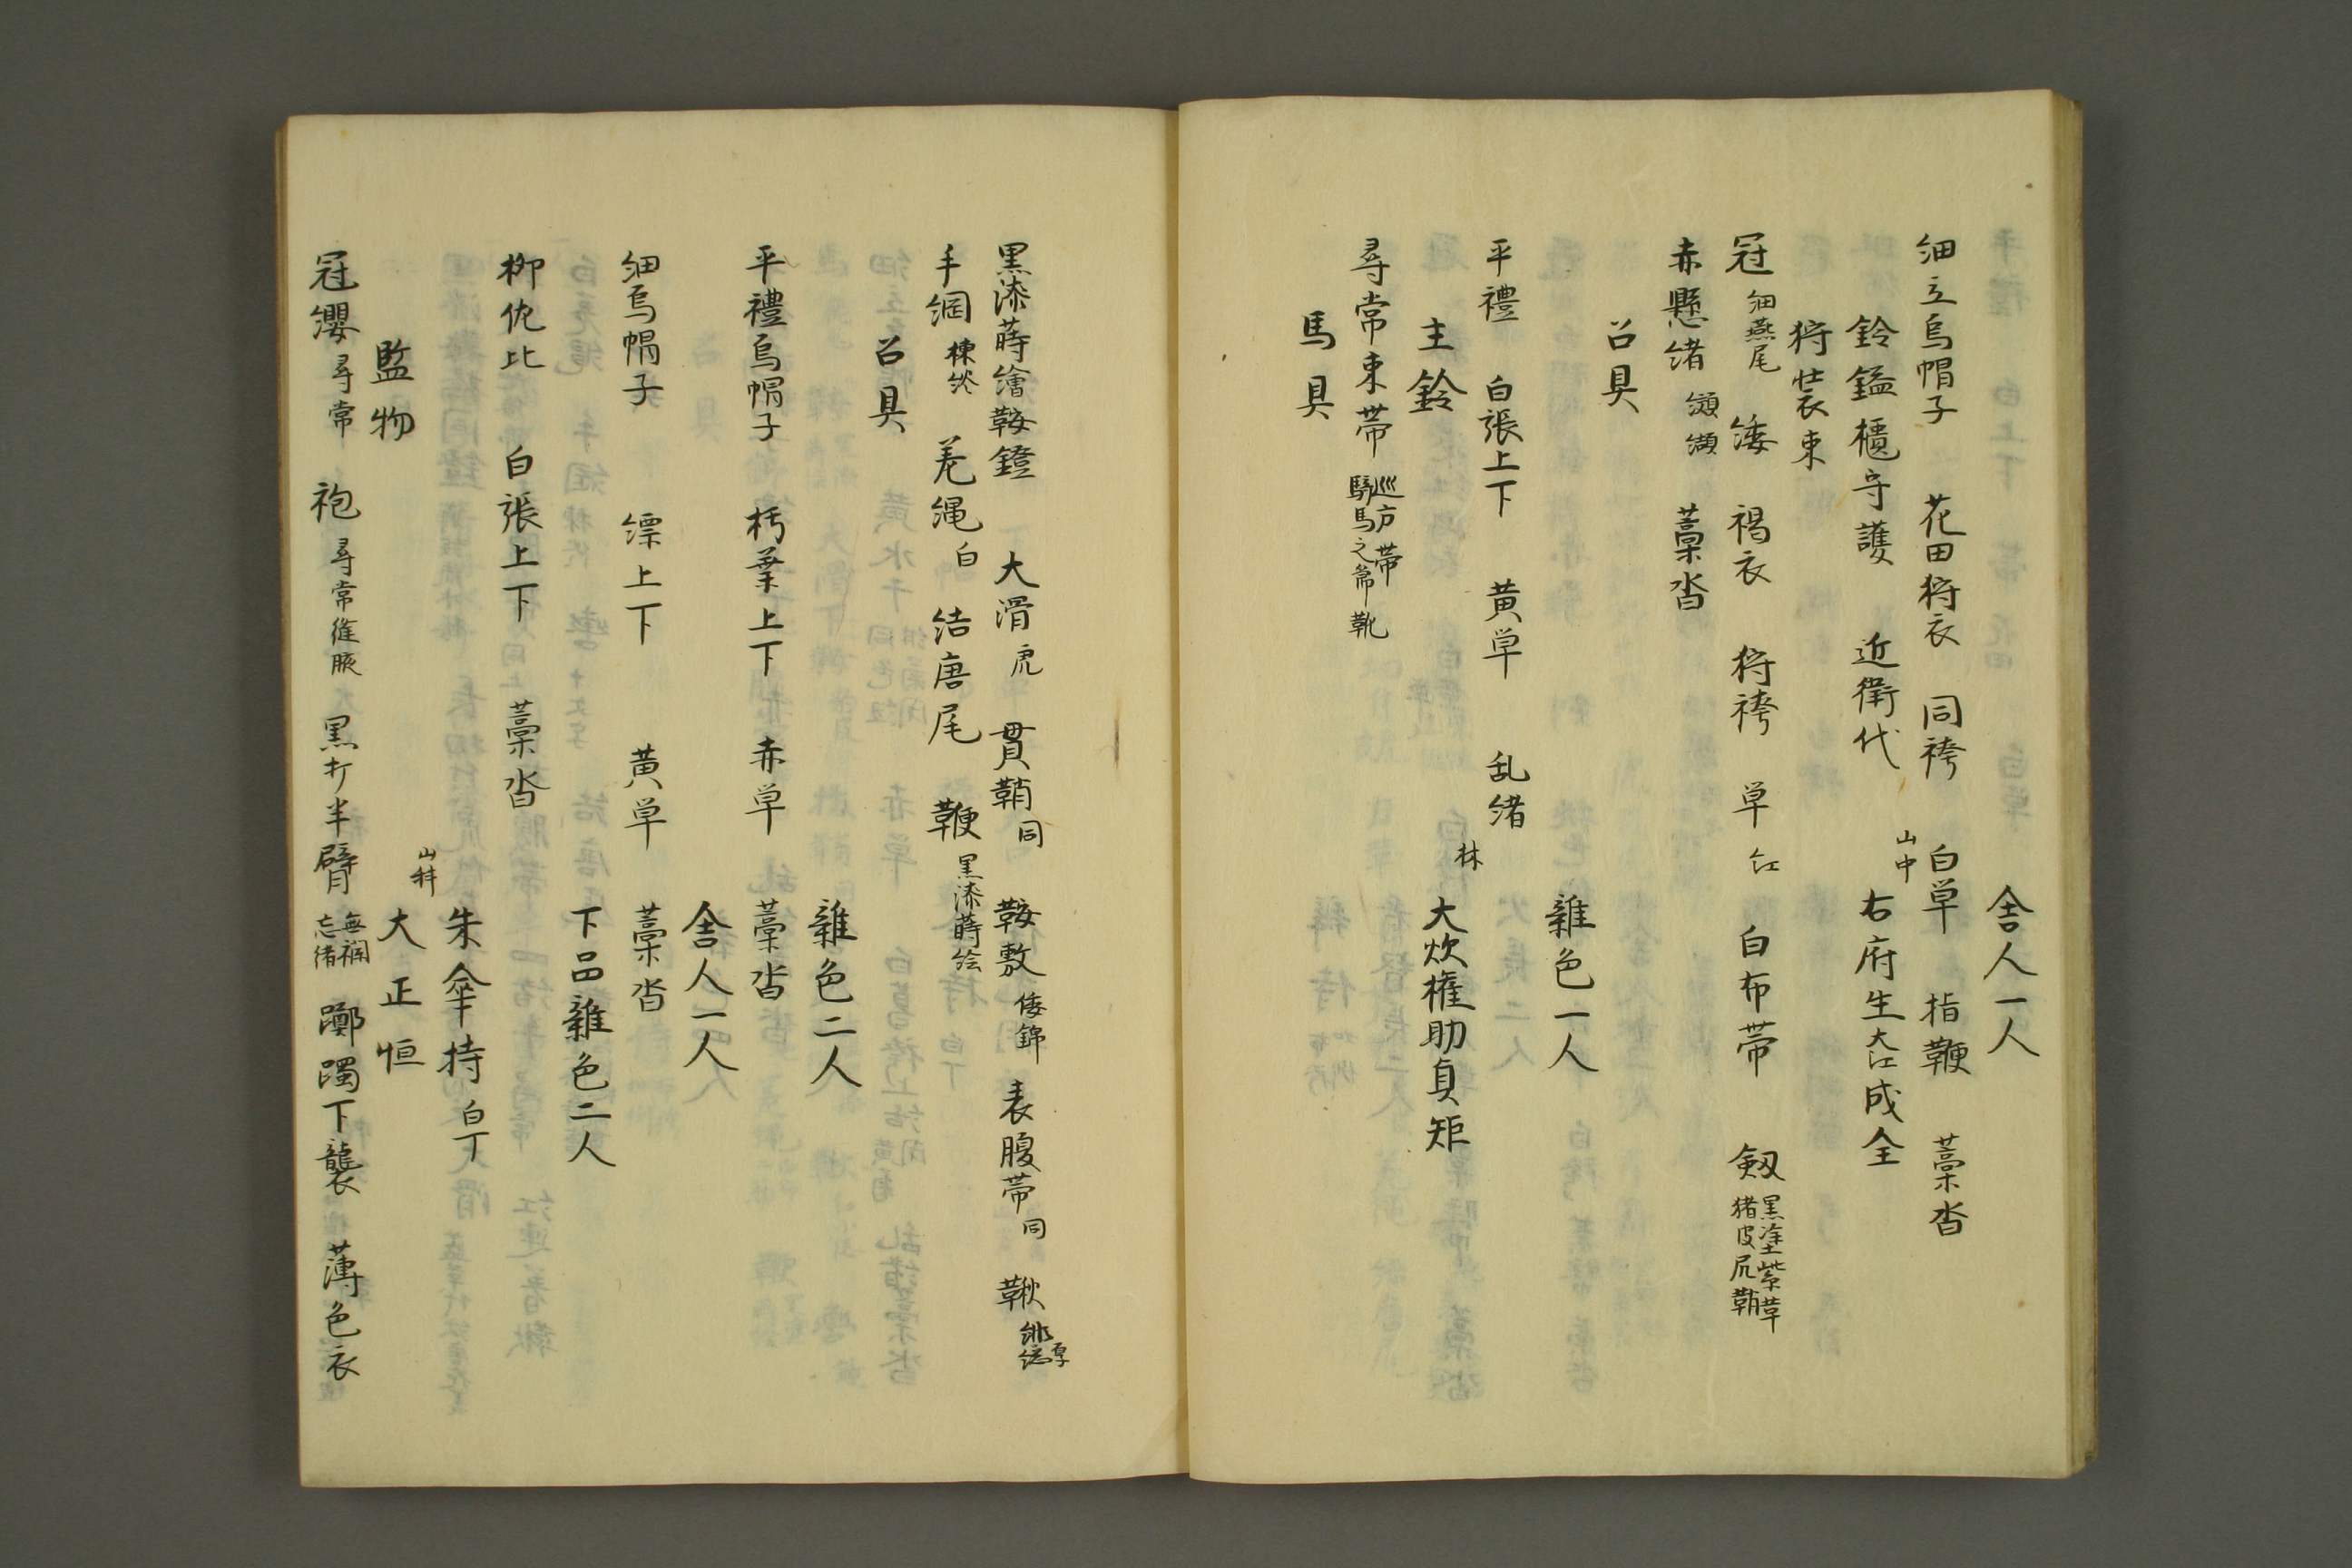 舎人一人
細立烏帽子 花田狩衣 同袴 白単 指鞭 藁沓
鈴鎰櫃守護 近衛代 山中 右府生大江成全
狩装束
冠 細燕尾 緌 褐衣 狩袴 単 紅 白布帯 剱 黒塗紫革 猪皮尻鞘
赤懸緒 纐纈 藁沓
召具
雑色一人
平禮 白張上下 黄単 乱緒
主鈴 林 大炊権助貞矩
尋常束帯 巡方帯 騎馬之節靴
馬具
黒漆蒔繪鞍鐙 大滑 虎 貫鞘 同 鞍敷 倭錦 表腹帯 同 鞦
手綱 楝 差縄 白 結唐尾 鞭 黒漆蒔絵
召具
雑色二人
平禮烏帽子 朽葉上下 赤単 藁沓
舎人一人
細烏帽子 縹上下 黄単 藁沓
下品雑色二人
柳佐比 白張上下 藁沓
朱傘持 白丁
監物 山科 大正恒
冠纓 尋常 袍 尋常縫腋 黒打半臂 無襴 忘緒 躑躅下襲 薄色衣